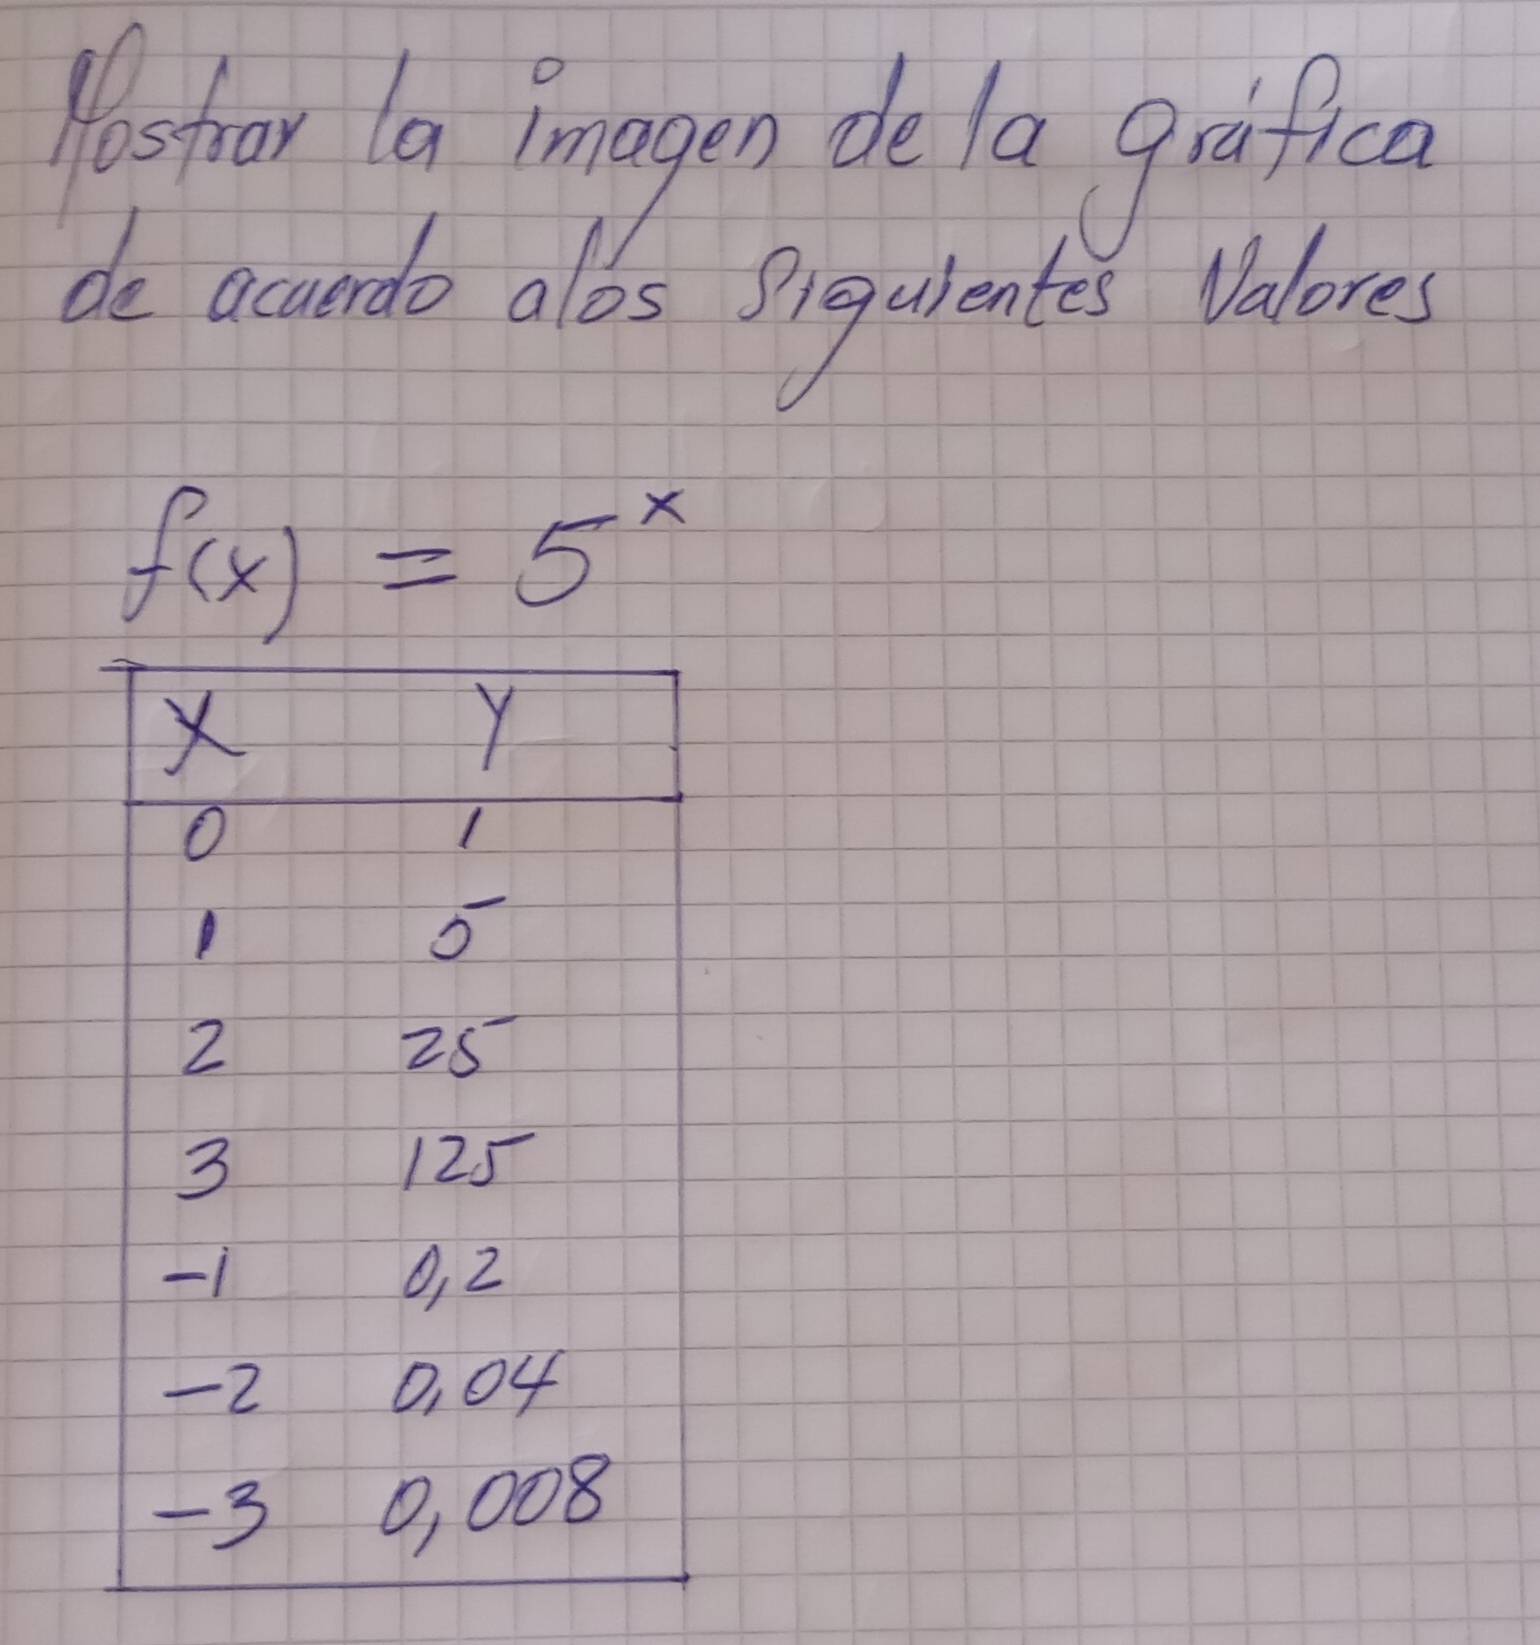 Mostrar la imagen de la gráfica
de acuerdo a los Siguientes Valores
f(x) = 5^x
X Y
0 1
1 5
2 25
3 125
-1 0,2
-2 0,04
-3 0,008